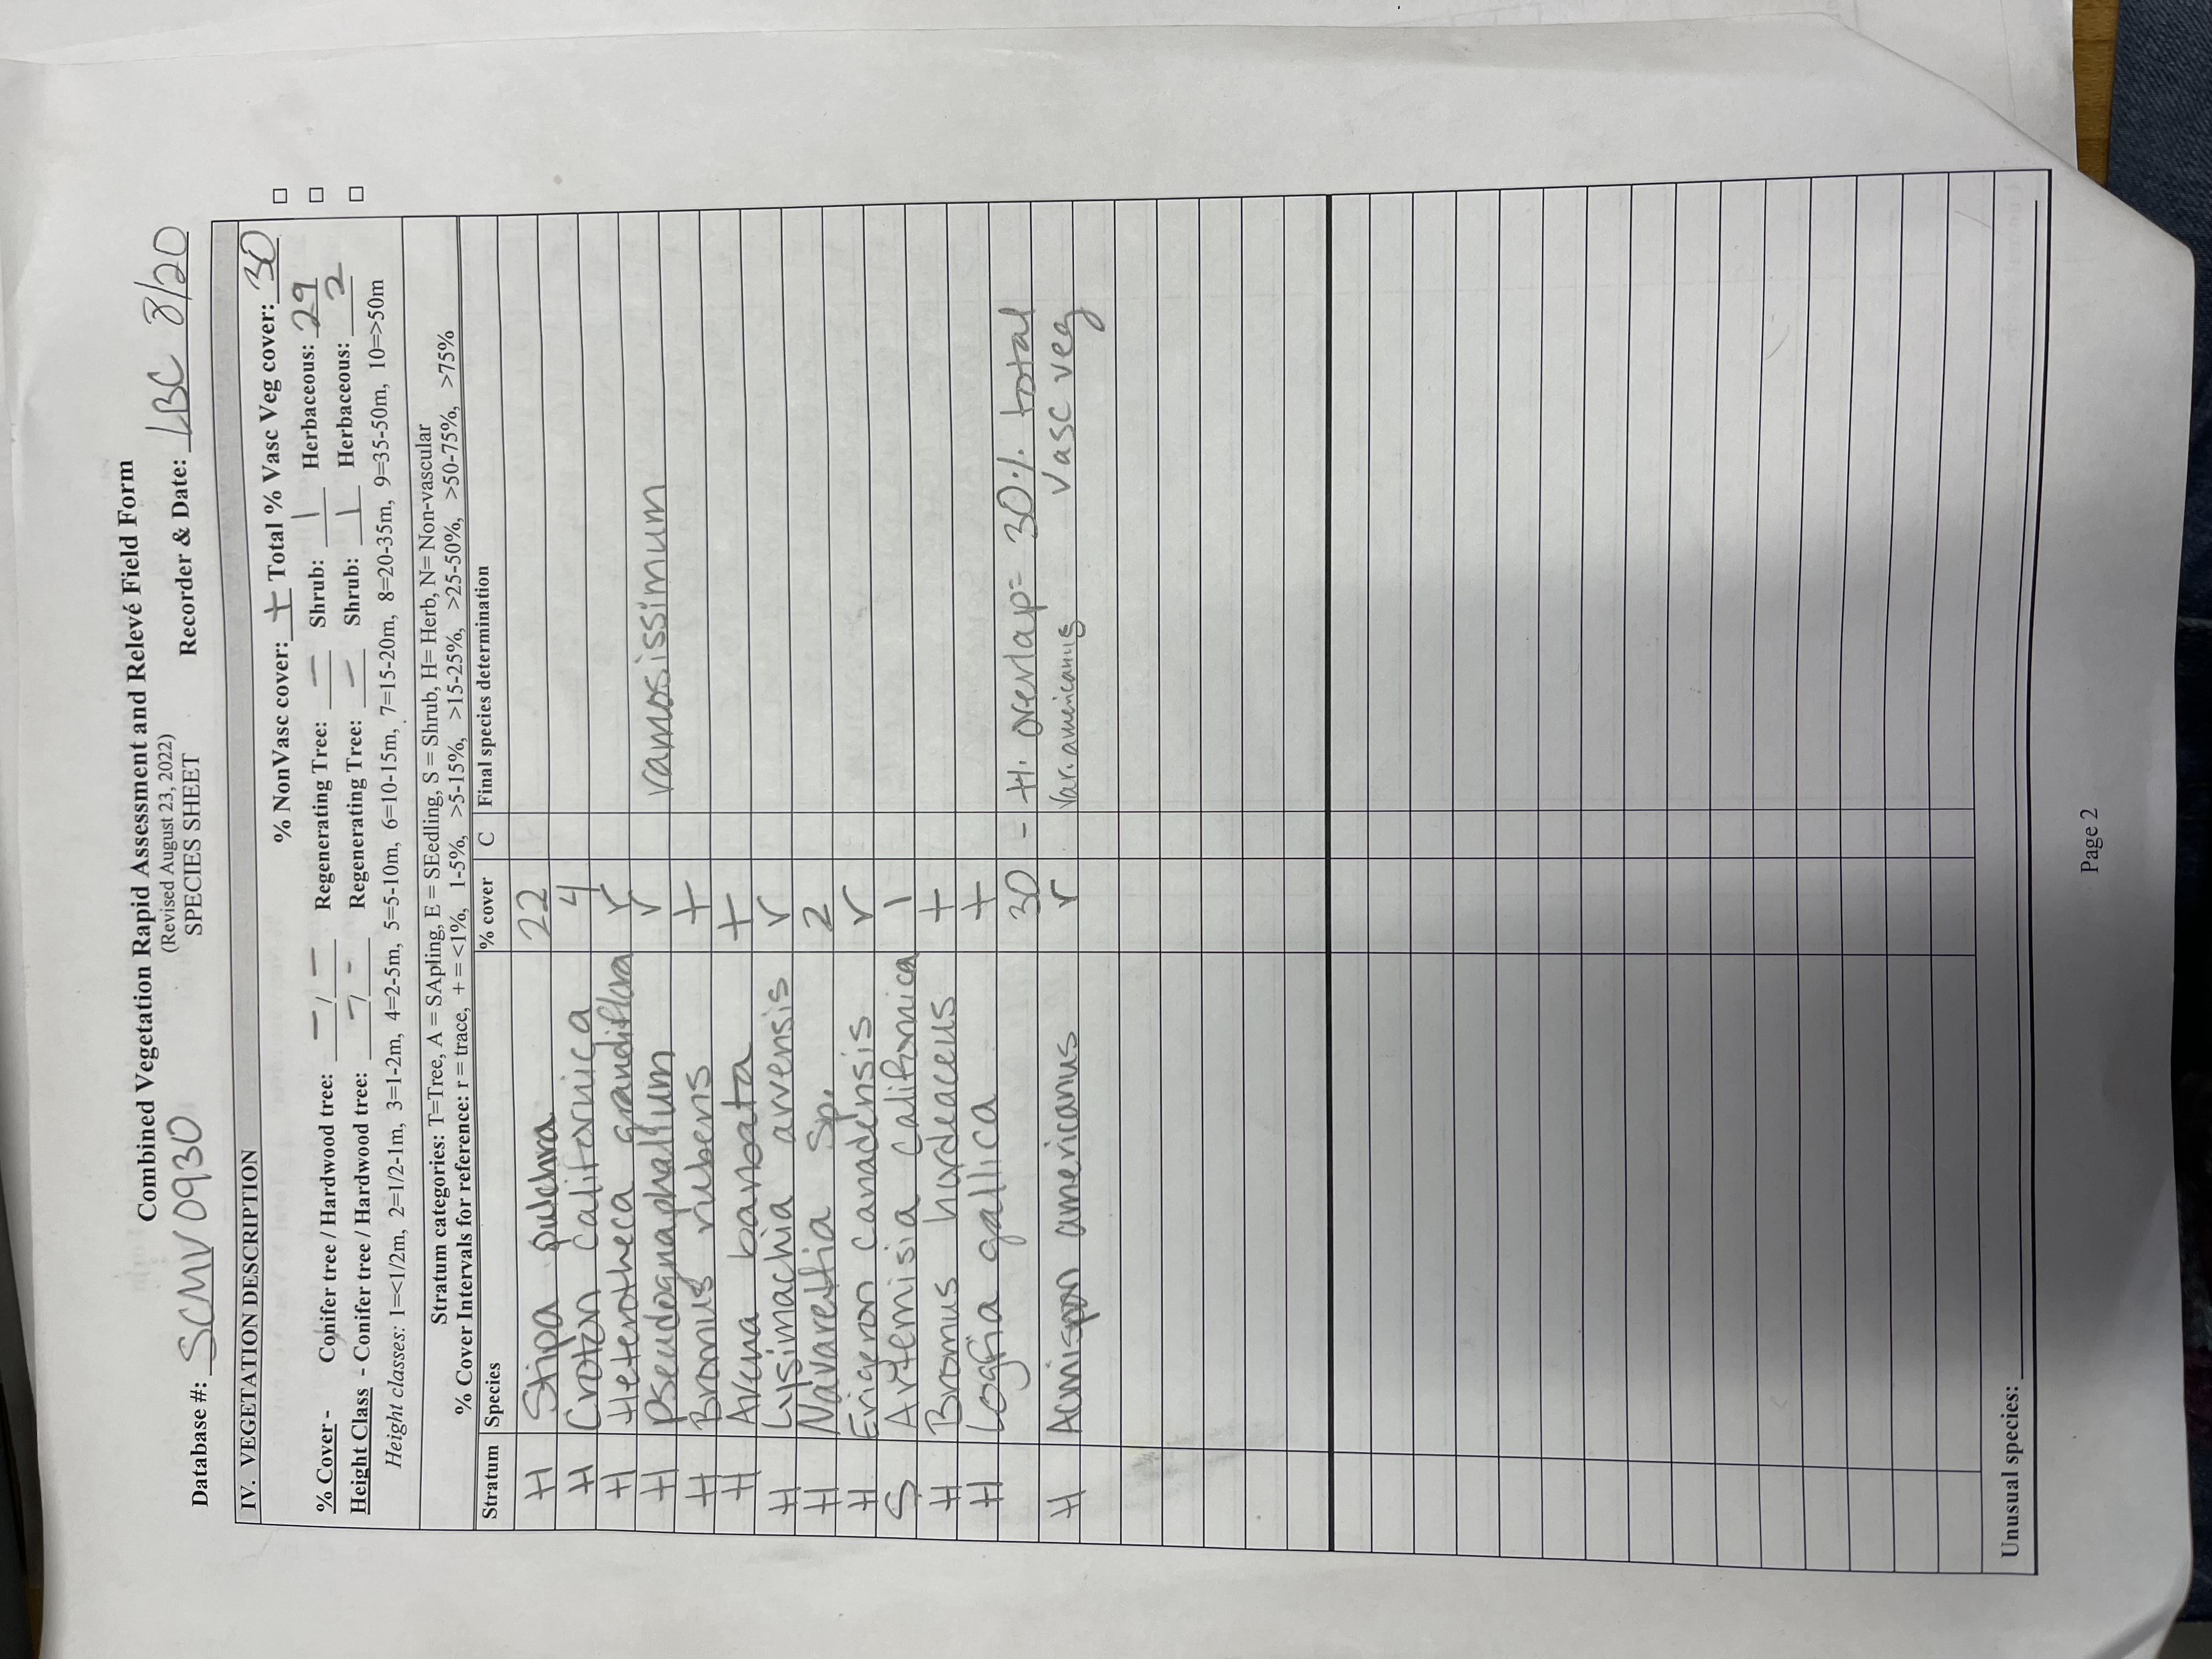 Combined Vegetation Rapid Assessment and Relevé Field Form
(Revised August 23, 2022)
SPECIES SHEET
Database #: SCMV0930 Recorder & Date: LBC 8/20
IV. VEGETATION DESCRIPTION
% NonVasc cover: + Total % Vasc Veg cover: 30
% Cover - Conifer tree / Hardwood tree: - / - Regenerating Tree: - Shrub: 1 Herbaceous: 29
Height Class - Conifer tree / Hardwood tree: - / - Regenerating Tree: - Shrub: 1 Herbaceous: 2
Height classes: 1=<1/2m, 2=1/2-1m, 3=1-2m, 4=2-5m, 5=5-10m, 6=10-15m, 7=15-20m, 8=20-35m, 9=35-50m, 10=>50m
Stratum categories: T=Tree, A = SApling, E = SEedling, S = Shrub, H= Herb, N= Non-vascular
% Cover Intervals for reference: r = trace, + = <1%, 1-5%, >5-15%, >15-25%, >25-50%, >50-75%, >75%
Stratum Species % cover C Final species determination
H Stipa pulchra 22
H Croton californica 4
H Heterotheca grandiflora r
H Pseudognaphalium r ramosissimum
H Bromus rubens +
H Avena barbata +
H Lysimachia arvensis r
H Navarettia sp. 2
H Erigeron canadensis r
S Artemisia californica 1
H Bromus hordeaceus +
H Logfia gallica +
30 - H. overlap = 30% total
vasc veg
H Acmispon americanus r var. americanus
Unusual species:
Page 2